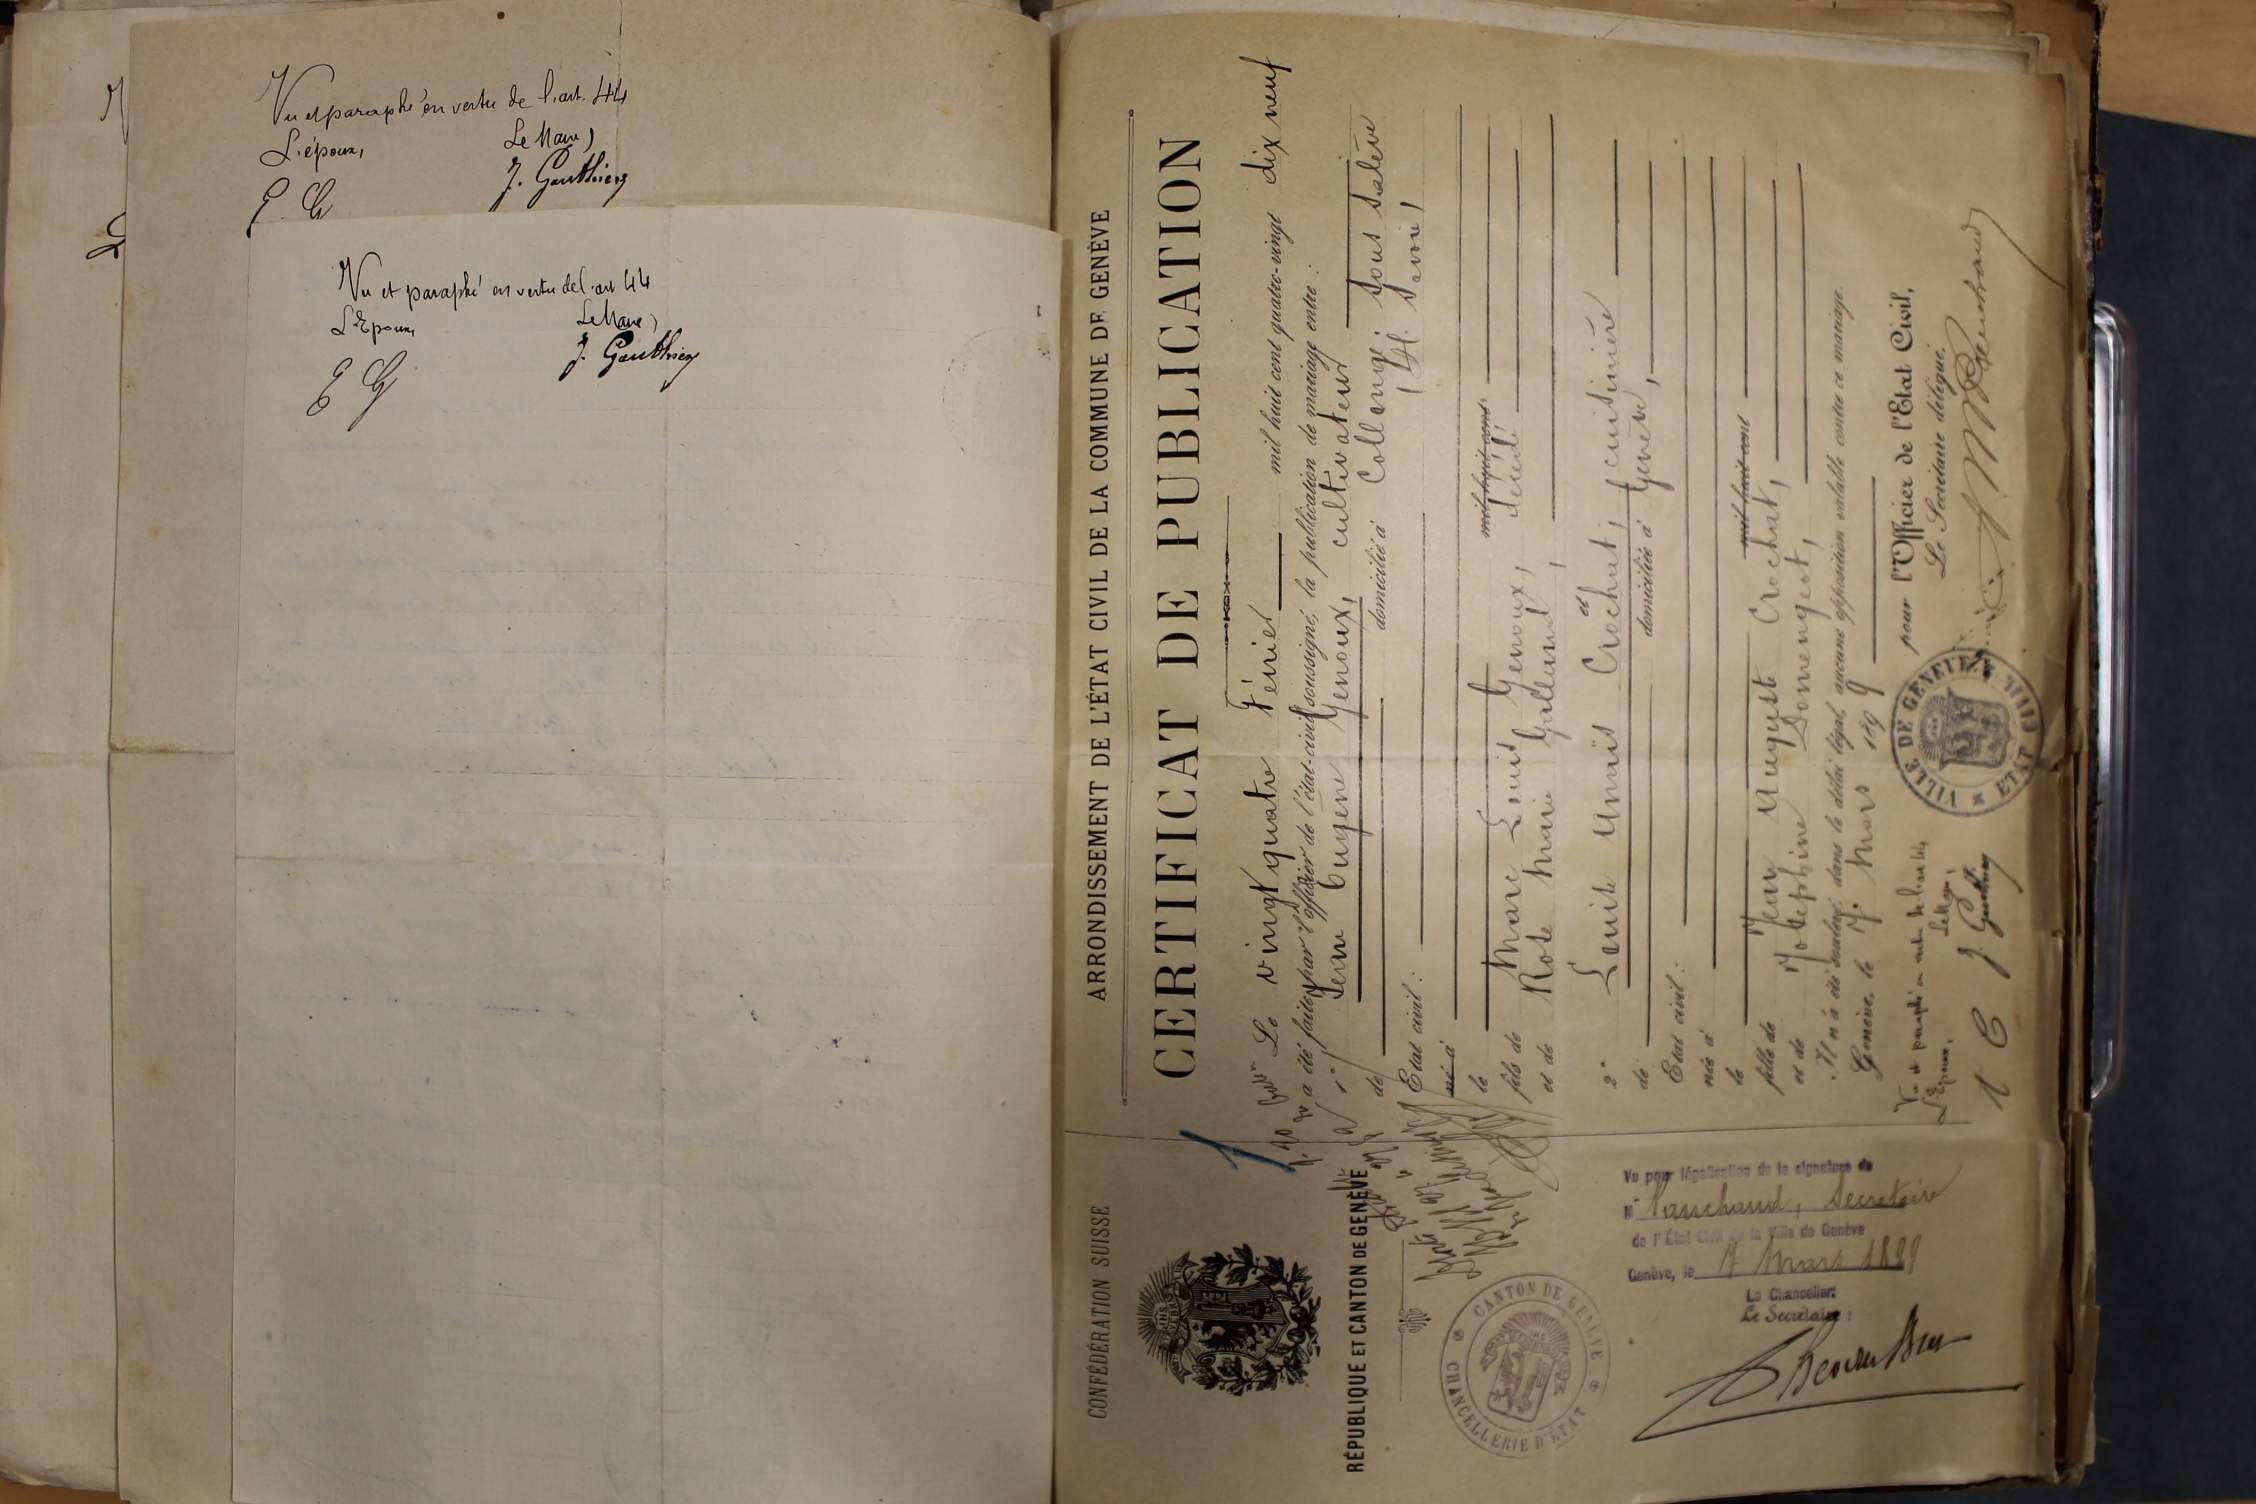 Vu et paraphé en vertu de l'art. 44
L'époux, Le Maire,
E. G J. Gauthier
Vu et paraphé en vertu de l'art 44
L'Epoux, Le Maire,
E G J. Gauthier
CONFÉDÉRATION SUISSE
RÉPUBLIQUE ET CANTON DE GENÈVE
CHANCELLERIE D'ÉTAT CANTON DE GENÈVE
Vu pour légalisation de la signature de
M Panchaud, Secrétaire
de l'État Civil de la Ville de Genève
Genève, le 7 Mars 1899
Le Chancelier:
Le Secrétaire:
ARRONDISSEMENT DE L'ÉTAT CIVIL DE LA COMMUNE DE GENÈVE
CERTIFICAT DE PUBLICATION
Le vingt quatre Février mil huit cent quatre-vingt dix neuf
a été faite, par l'officier de l'état-civil soussigné, la publication de mariage entre :
1° Jean Eugène Genoux, cultivateur
de domicilié à Collonges sous Salève
Etat civil : (Hte Savoie)
né à
le mil huit cent
fils de Marc Louis Genoux, décédé
et de Rose Marie Gallend,
et
2° Louise Annaïs Crochat, cuisinière
de domiciliée à Genève,
Etat civil :
née à
le mil huit cent
fille de Jean Auguste Crochat,
et de Josephine Domengeot,
Il n'a été signalé, dans le délai légal, aucune opposition valable contre ce mariage.
Genève, le 7. Mars 1899
pour l'Officier de l'Etat Civil,
Le Secrétaire délégué.
VILLE DE GENÈVE ETAT CIVIL
Vu et paraphé en vertu de l'art 44
L'Epoux, Le Maire,
J. Gauthier